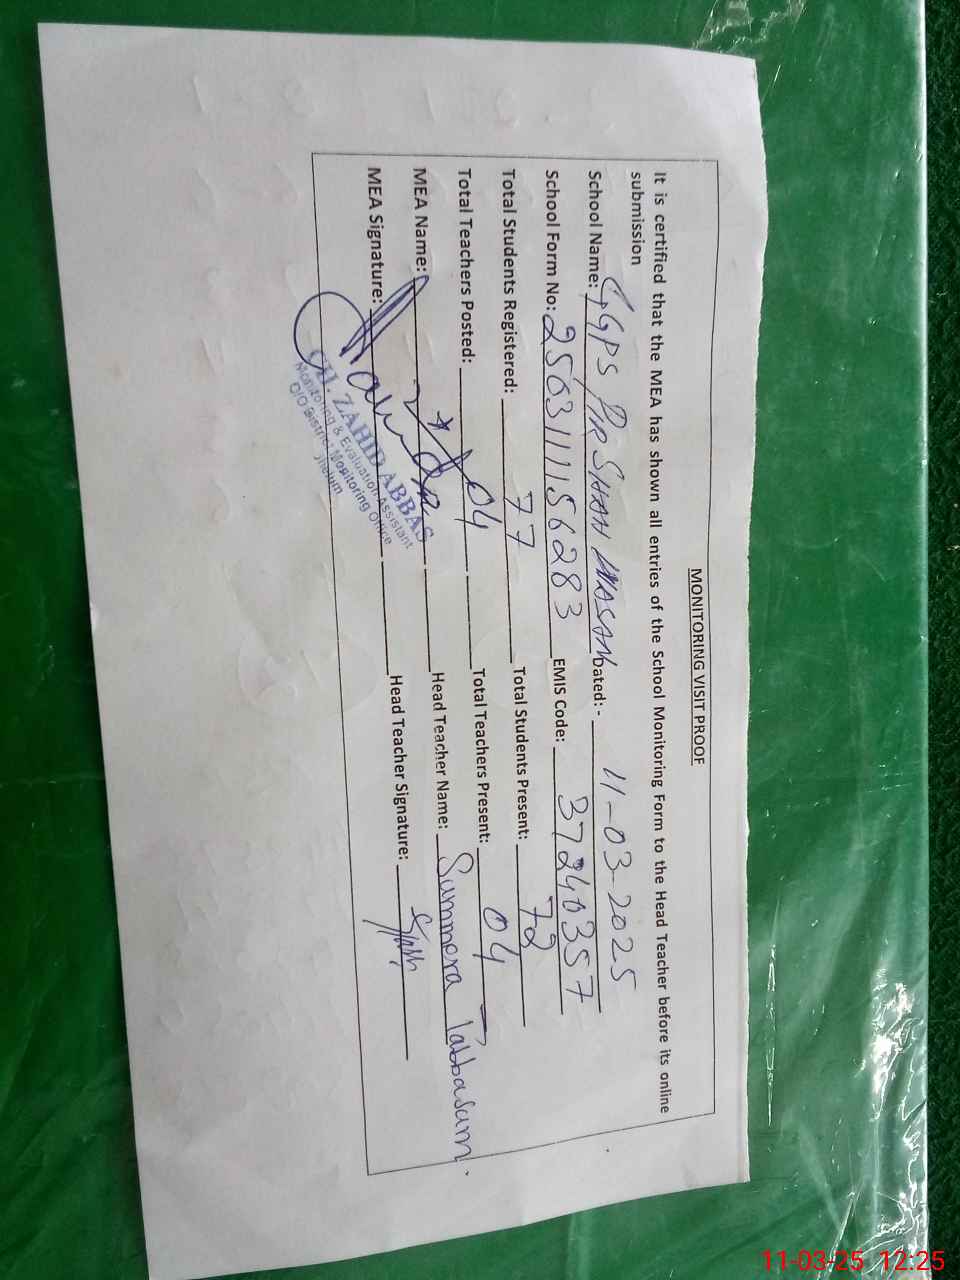 MONITORING VISIT PROOF
It is certified that the MEA has shown all entries of the School Monitoring Form to the Head Teacher before its online
submission
School Name: GGPS PIR SHAH WASAN Dated:- 11-03-2025
School Form No: 2503111156283 EMIS Code: 37240357
Total Students Registered: 77 Total Students Present: 72
Total Teachers Posted: 04 Total Teachers Present: 04
MEA Name: Head Teacher Name: Summera Tabbasam.
MEA Signature: Head Teacher Signature:
CH. ZAHID ABBAS
Monitoring & Evaluation Assistant
O/O District Monitoring Office
Jhelum
11-03-25 12:25